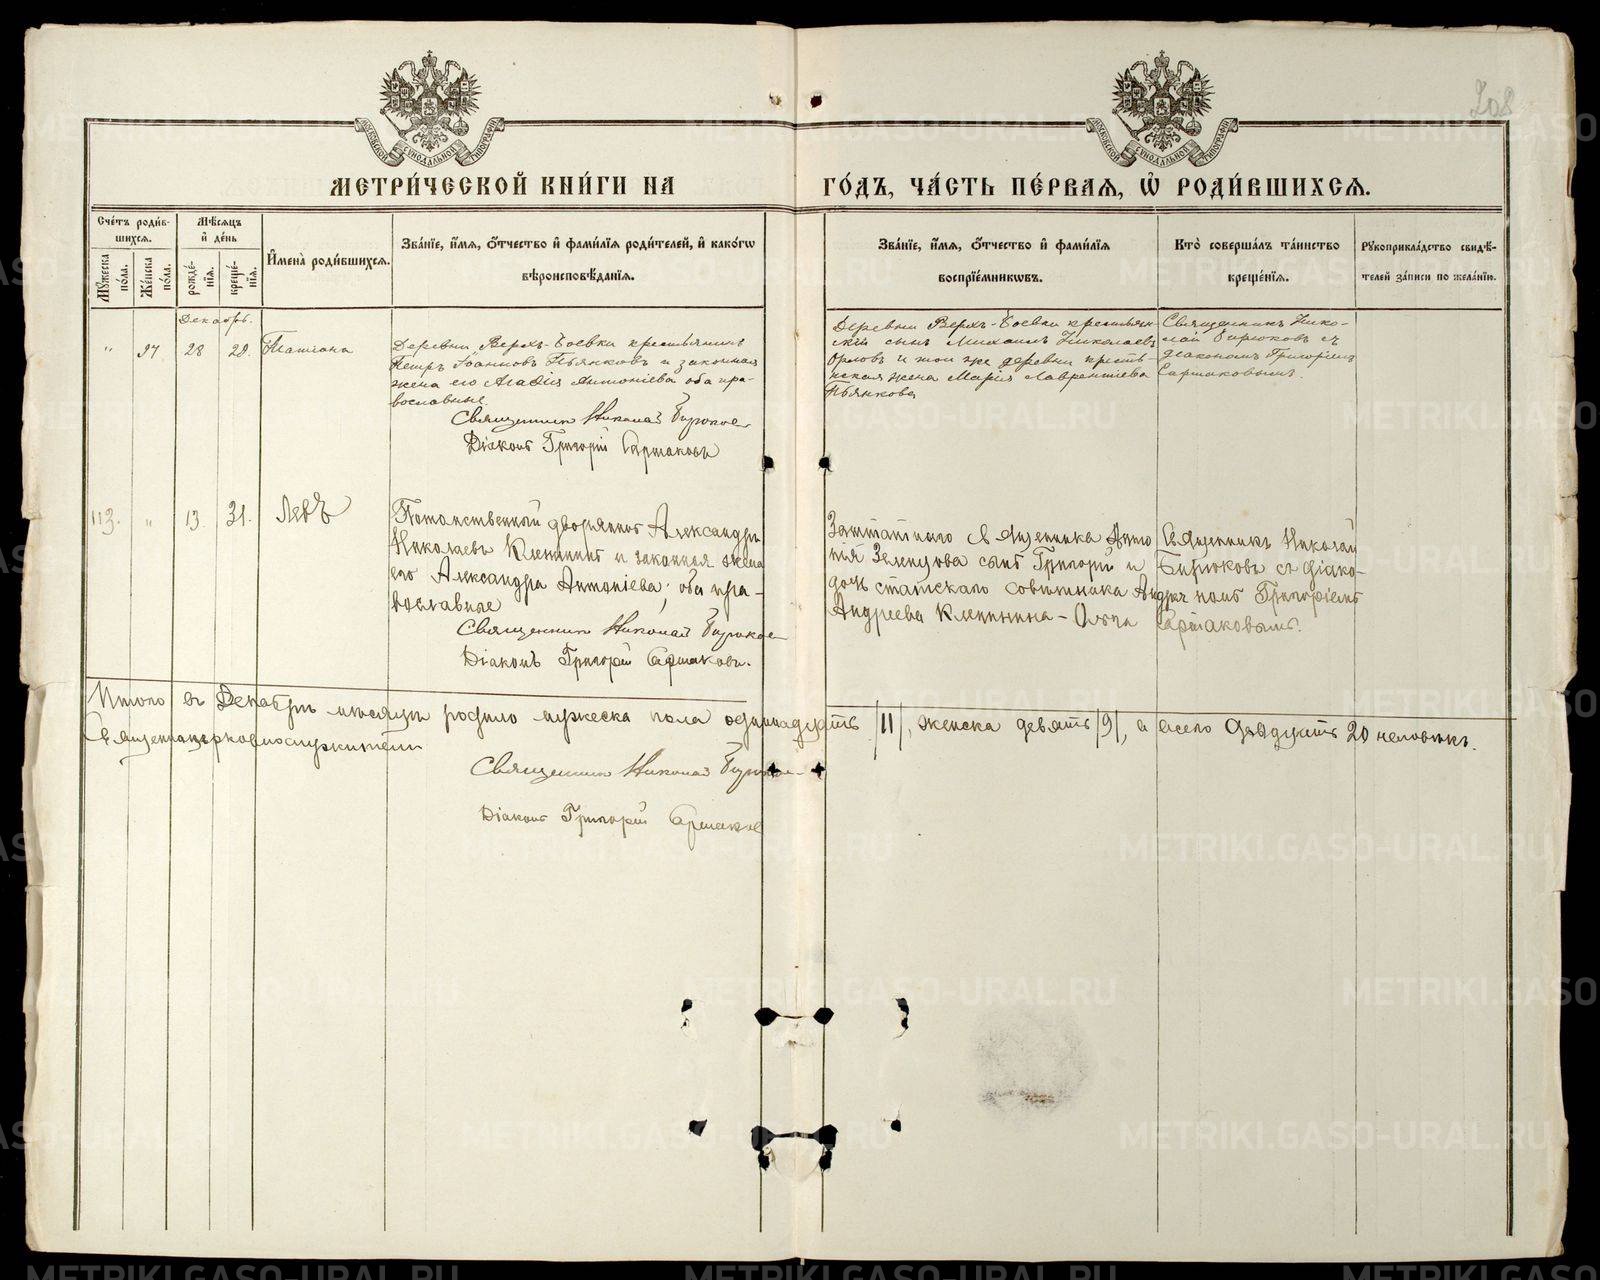 208
МОСКОВСКОЙ СѴНОДАЛЬНОЙ ТИПОГРАФІИ
МОСКОВСКОЙ СѴНОДАЛЬНОЙ ТИПОГРАФІИ
МЕТРИ́ЧЕСКОЙ КНИ́ГИ НА
ГО́ДЪ, ЧА́СТЬ ПЕ́РВАѦ, Ѡ҆ РОДИ́ВШИХСѦ.
Сче́тъ роди́в-
шихсѧ.
Мѣ́сѧцъ
и҆ де́нь
Мꙋ́жеска по́ла.
Же́нска по́ла.
рожде́-нїѧ.
креще́-нїѧ.
И҆мена̀ роди́вшихсѧ.
Зва́нїе, и҆́мѧ, о҆́тчество и҆ фами́лїѧ роди́телей, и҆ како́гѡ
вѣроисповѣ́данїѧ.
Зва́нїе, и҆́мѧ, о҆́тчество и҆ фами́лїѧ
воспрїе́мникѡвъ.
Кто̀ соверша́лъ та́инство
креще́нїѧ.
Рꙋкоприкла́дство свидѣ́-
телей за́писи по жела́нїю.
Декабрь.
" 97 28 29. Татіана
Деревни Верхъ-Боевки крестьянинъ
Петръ Іоанновъ Пьянковъ и законная
жена его Агафія Антоніева оба пра-
вославные.
Священникъ Николай Бирюков
Діаконъ Григорій Сартаковъ
Деревни Верхъ-Боевки крестьян-
скій сынъ Михаилъ Николаевъ
Орловъ и той же деревни кресть-
янская жена Марія Лаврентіева
Пьянкова
Священникъ Нико-
лай Бирюковъ съ
діакономъ Григоріемъ
Сартаковымъ.
113. " 13. 31. Левъ
Потомственный дворянинъ Александръ
Николаевъ Клепининъ и законная жена
его Александра Антоніева; оба пра-
вославные
Священникъ Николай Бирюков
Діаконъ Григорій Сартаковъ.
Заштатнаго священника Анто
нія Зеленцова сынъ Григорій и
дочь статскаго совѣтника Андрея
Андреева Клепинина - Ольга
Священникъ Николай
Бирюковъ съ діако-
номъ Григоріемъ
Сартаковымъ.
Итого въ Декабрѣ мѣсяцѣ родило мужеска пола одиннадцать /11/, женска девять /9/, а всего двадцать 20 человѣкъ.
Священноцерковнослужители
Священникъ Николай Бирюков
Діаконъ Григорій Сартаков
METRIKI.GASO-URAL.RU